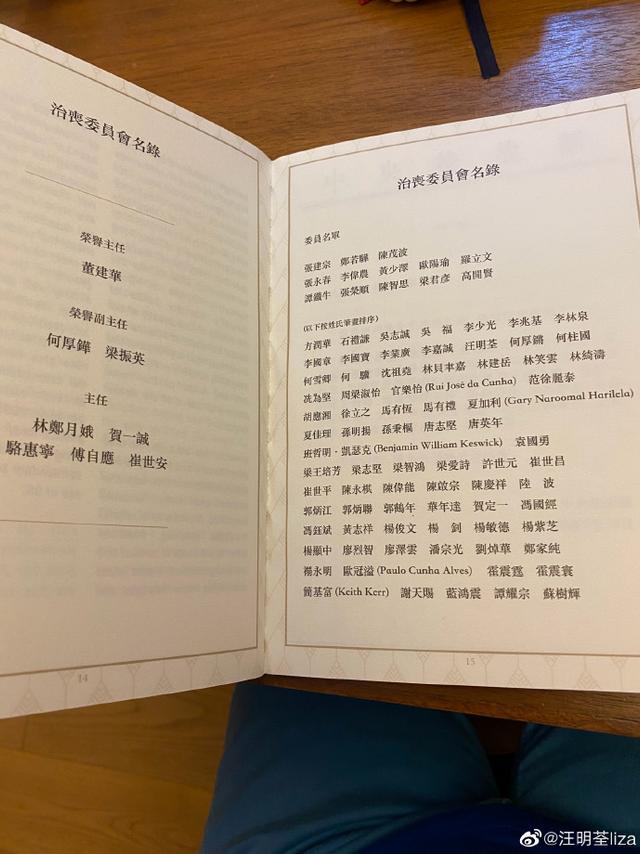 治喪委員會名錄
榮譽主任
董建華
榮譽副主任
何厚鏵 梁振英
主任
林鄭月娥 賀一誠
駱惠寧 傅自應 崔世安
14
治喪委員會名錄
委員名單
張建宗 鄭若驊 陳茂波
張永春 李偉農 黃少澤 歐陽瑜 羅立文
譚鐵牛 張榮順 陳智思 梁君彥 高開賢
(以下按姓氏筆畫排序)
方潤華 石禮謙 吳志誠 吳福 李少光 李兆基 李林泉
李國章 李國寶 李業廣 李嘉誠 汪明荃 何厚鏘 何柱國
何雪卿 何驥 沈祖堯 林貝聿嘉 林建岳 林笑雲 林綺濤
冼為堅 周梁淑怡 官樂怡 (Rui José da Cunha) 范徐麗泰
胡應湘 徐立之 馬有恆 馬有禮 夏加利 (Gary Naroomal Harilela)
夏佳理 孫明揚 孫秉樞 唐志堅 唐英年
班哲明·凱瑟克 (Benjamin William Keswick) 袁國勇
梁王培芳 梁志堅 梁智鴻 梁愛詩 許世元 崔世昌
崔世平 陳永棋 陳偉能 陳啟宗 陳慶祥 陸波
郭炳江 郭炳聯 郭鶴年 華年達 賀定一 馮國經
馮鈺斌 黃志祥 楊俊文 楊釗 楊敏德 楊紫芝
楊顯中 廖烈智 廖澤雲 潘宗光 劉焯華 鄭家純
禤永明 歐冠溢 (Paulo Cunha Alves) 霍震霆 霍震寰
簡基富 (Keith Kerr) 謝天賜 藍鴻震 譚耀宗 蘇樹輝
15
@汪明荃liza